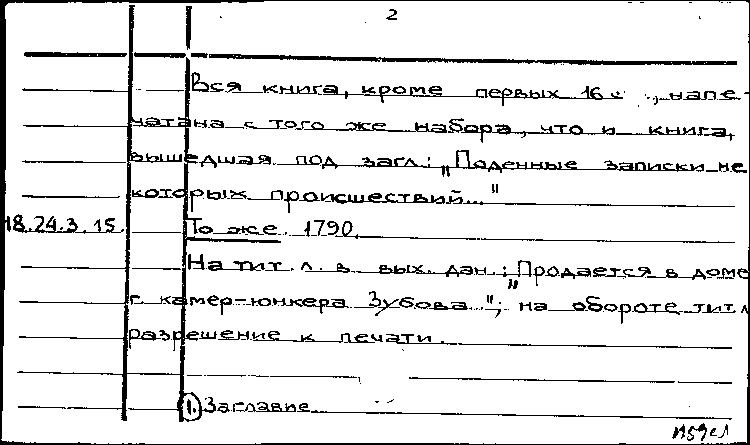 2
Вся книга, кроме первых 16 с., напе-
чатана с того же набора, что и книга,
вышедшая под загл.: „Поденные записки не
которых происшествий..."
18.24.3.15. То же. 1790.
На тит. л. в вых. дан.: „Продается в доме
г. камер-юнкера Зубова.."; на обороте тит. л
разрешение к печати.
1. Заглавие